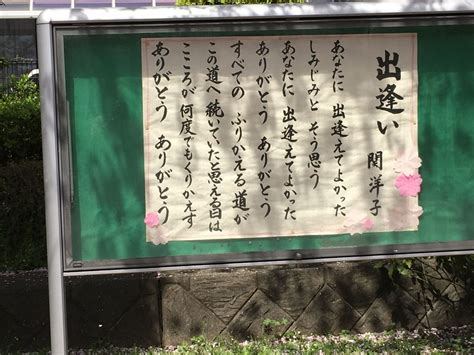 出逢い
関洋子
あなたに 出逢えてよかった
しみじみと そう思う
あなたに 出逢えてよかった
ありがとう ありがとう
すべての ふりかえる道が
この道へ 続いていたと思える日は
こころが 何度でもくりかえす
ありがとう ありがとう